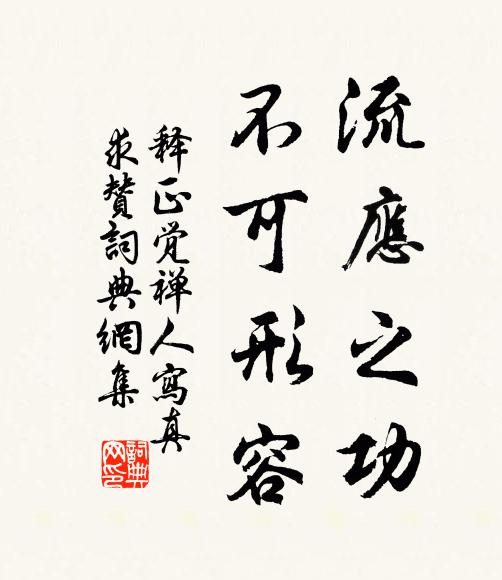 流應之功
不可形容
释正觉禅人寫真
求賛詞典網集
詞典網印